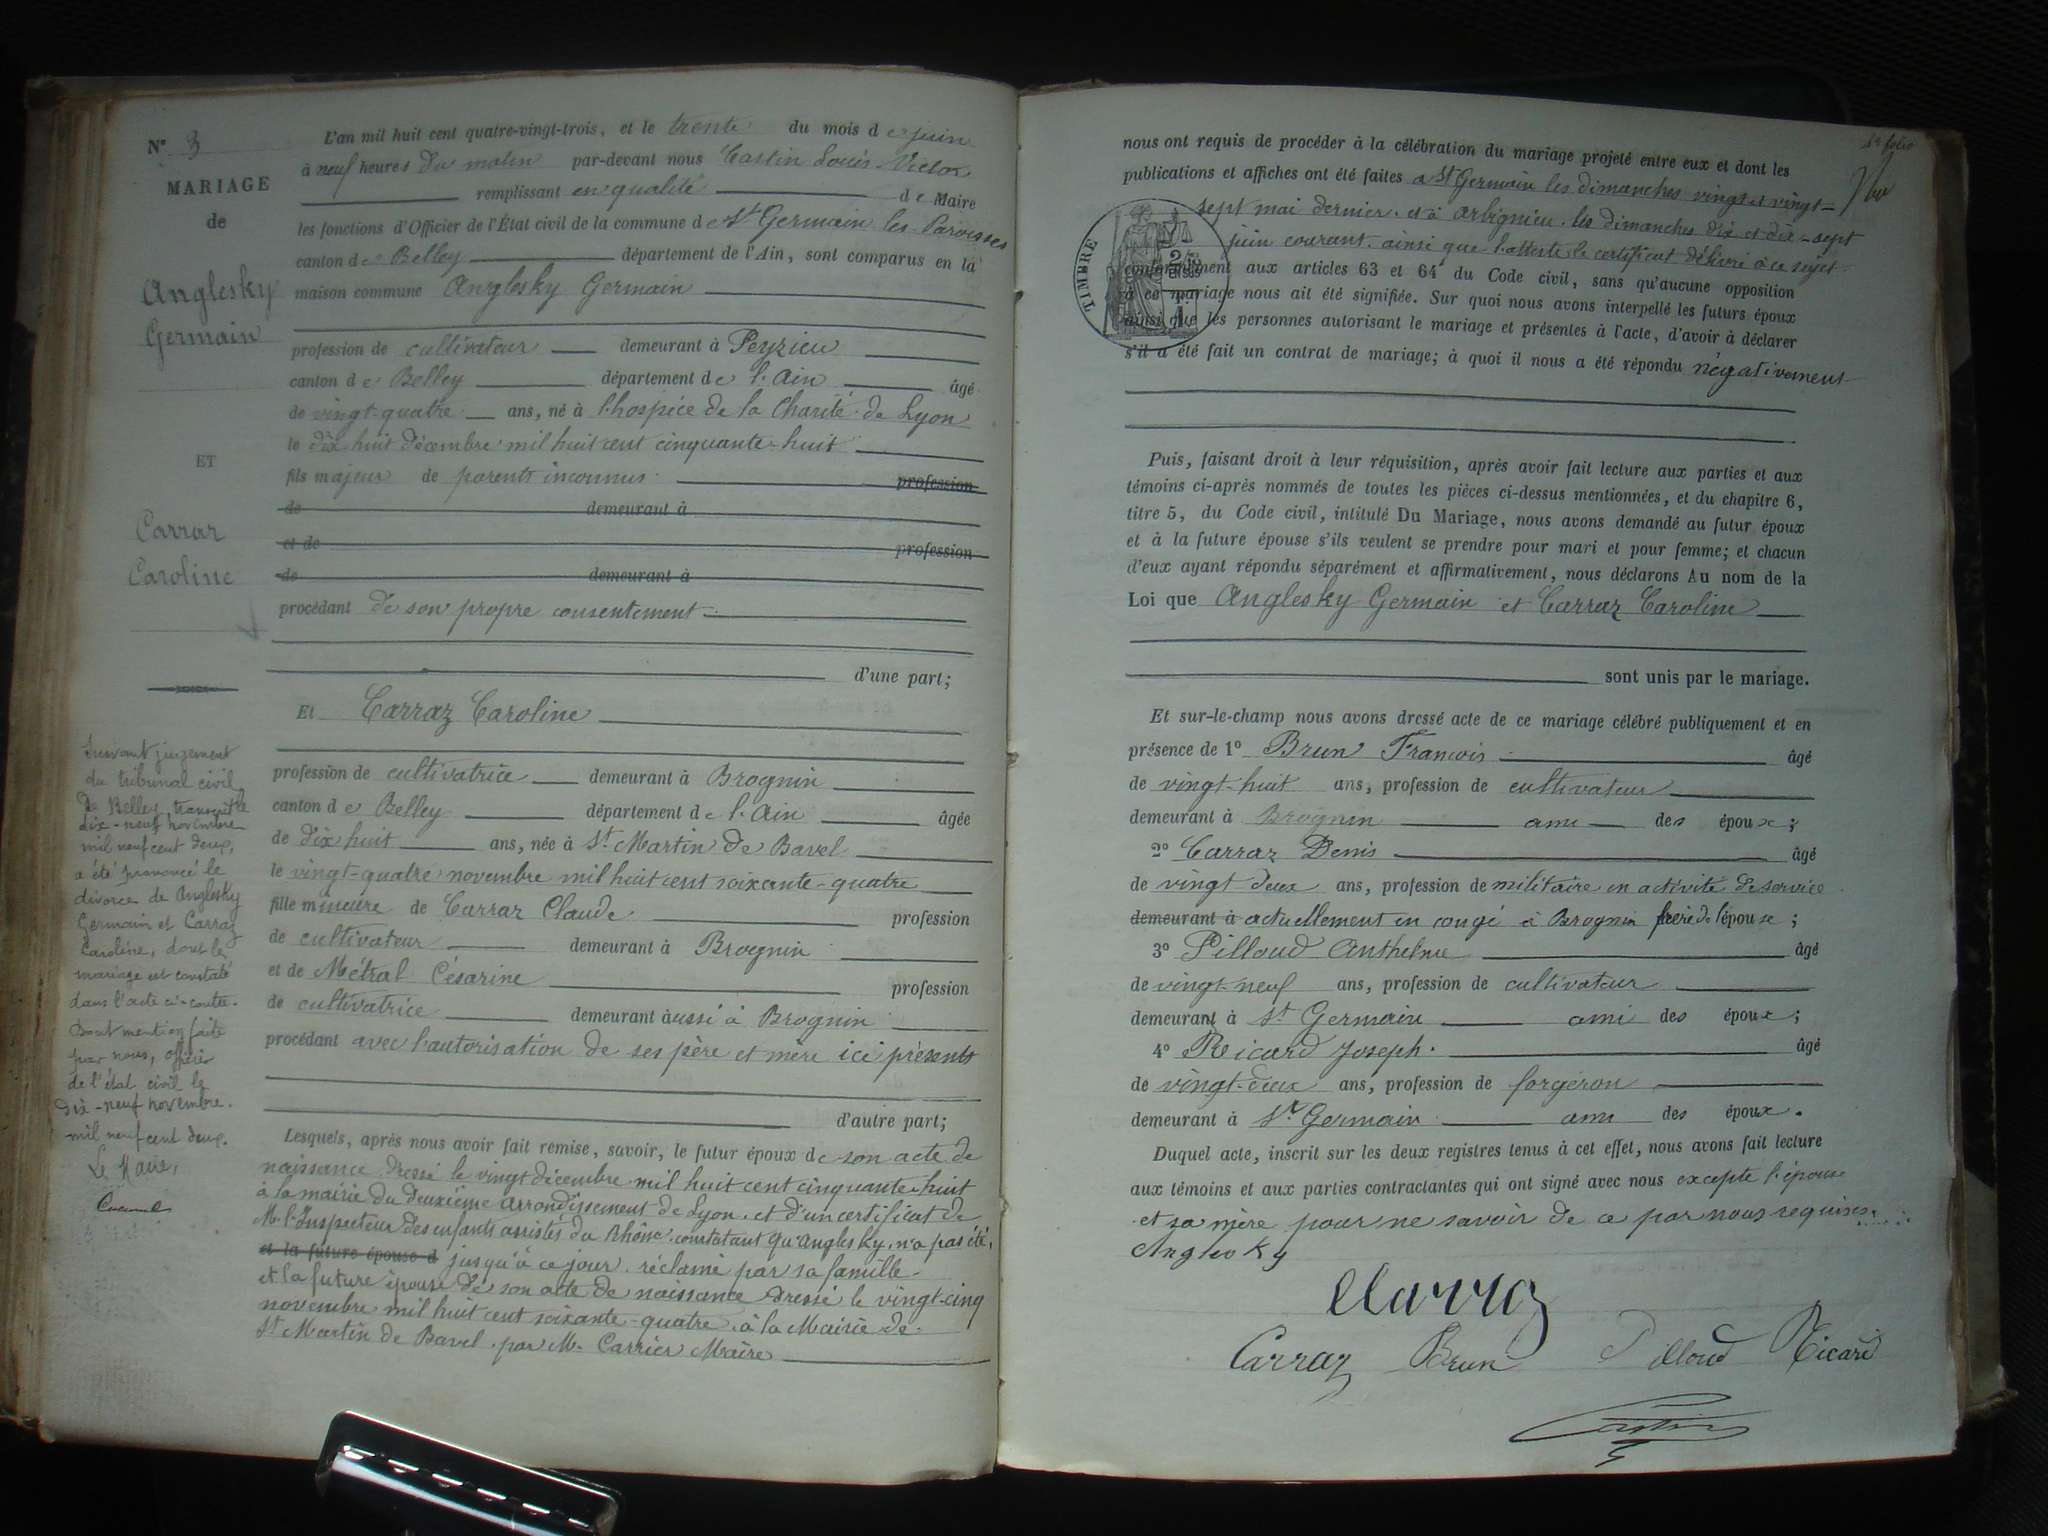 N° 3
MARIAGE
de
Anglesky
Germain
ET
Carraz
Caroline
Suivant jugement
du tribunal civil
de Belley, transcrit le
dix-neuf novembre
mil neuf cent deux,
a été prononcé le
divorce de Anglesky
Germain et Carraz
Caroline, dont le
mariage est constaté
dans l'acte ci-contre.
Dont mention faite
par nous, officier
de l'état civil le
dix-neuf novembre.
mil neuf cent deux.
Le Maire,
L'an mil huit cent quatre-vingt-trois, et le trente du mois de juin
à neuf heures du matin par-devant nous Castin Louis Victor
remplissant en qualité de Maire
les fonctions d'Officier de l'État civil de la commune de St Germain les Paroisses
canton de Belley département de l'Ain, sont comparus en la
maison commune Anglesky Germain
profession de cultivateur demeurant à Peyzieu
canton de Belley département de l'Ain âgé
de vingt-quatre ans, né à l'hospice de la Charité de Lyon
le dix huit décembre mil huit cent cinquante-huit
fils majeur de parents inconnus profession
de demeurant à
et de profession
de demeurant à
procédant de son propre consentement
d'une part;
Et Carraz Caroline
profession de cultivatrice demeurant à Brognin
canton de Belley département de l'Ain âgée
de dix huit ans, née à St Martin de Bavel
le vingt-quatre novembre mil huit cent soixante-quatre
fille mineure de Carraz Claude profession
de cultivateur demeurant à Brognin
et de Métral Césarine profession
de cultivatrice demeurant aussi à Brognin
procédant avec l'autorisation de ses père et mère ici présents
d'autre part;
Lesquels, après nous avoir fait remise, savoir, le futur époux de son acte de
naissance dressé le vingt décembre mil huit cent cinquante-huit
à la mairie du deuxième arrondissement de Lyon, et d'un certificat de
M. l'Inspecteur des enfants assistés du Rhône constatant qu'Anglesky, n'a pas été,
et la future épouse d jusqu'à ce jour, réclamé par sa famille
et la future épouse de son acte de naissance dressé le vingt-cinq
novembre mil huit cent soixante-quatre à la Mairie de
St Martin de Bavel, par M. Carrier Maire
4e folio
nous ont requis de procéder à la célébration du mariage projeté entre eux et dont les
publications et affiches ont été faites a St Germain les dimanches vingt et vingt-
sept mai dernier, et à Arbignieu, les dimanches dix et dix-sept
juin courant, ainsi que l'atteste le certificat délivré à ce sujet
conformément aux articles 63 et 64 du Code civil, sans qu'aucune opposition
à ce mariage nous ait été signifiée. Sur quoi nous avons interpellé les futurs époux
ainsi que les personnes autorisant le mariage et présentes à l'acte, d'avoir à déclarer
s'il a été fait un contrat de mariage; à quoi il nous a été répondu négativement
TIMBRE
Puis, faisant droit à leur réquisition, après avoir fait lecture aux parties et aux
témoins ci-après nommés de toutes les pièces ci-dessus mentionnées, et du chapitre 6,
titre 5, du Code civil, intitulé Du Mariage, nous avons demandé au futur époux
et à la future épouse s'ils veulent se prendre pour mari et pour femme; et chacun
d'eux ayant répondu séparément et affirmativement, nous déclarons Au nom de la
Loi que Anglesky Germain et Carraz Caroline
sont unis par le mariage.
Et sur-le-champ nous avons dressé acte de ce mariage célébré publiquement et en
présence de 1° Brun François âgé
de vingt-huit ans, profession de cultivateur
demeurant à Brognin ami des époux;
2° Carraz Denis âgé
de vingt deux ans, profession de militaire en activité de service
demeurant à actuellement en congé à Brognin frère de l'épouse;
3° Pilloud Anthelme âgé
de vingt-neuf ans, profession de cultivateur
demeurant à St Germain ami des époux;
4° Ricard Joseph âgé
de vingt-deux ans, profession de forgeron
demeurant à St Germain ami des époux.
Duquel acte, inscrit sur les deux registres tenus à cet effet, nous avons fait lecture
aux témoins et aux parties contractantes qui ont signé avec nous excepté l'épouse
et sa mère pour ne savoir de ce par nous requises
Anglesky
Carraz
Carraz Brun Pilloud Ricard
Castin